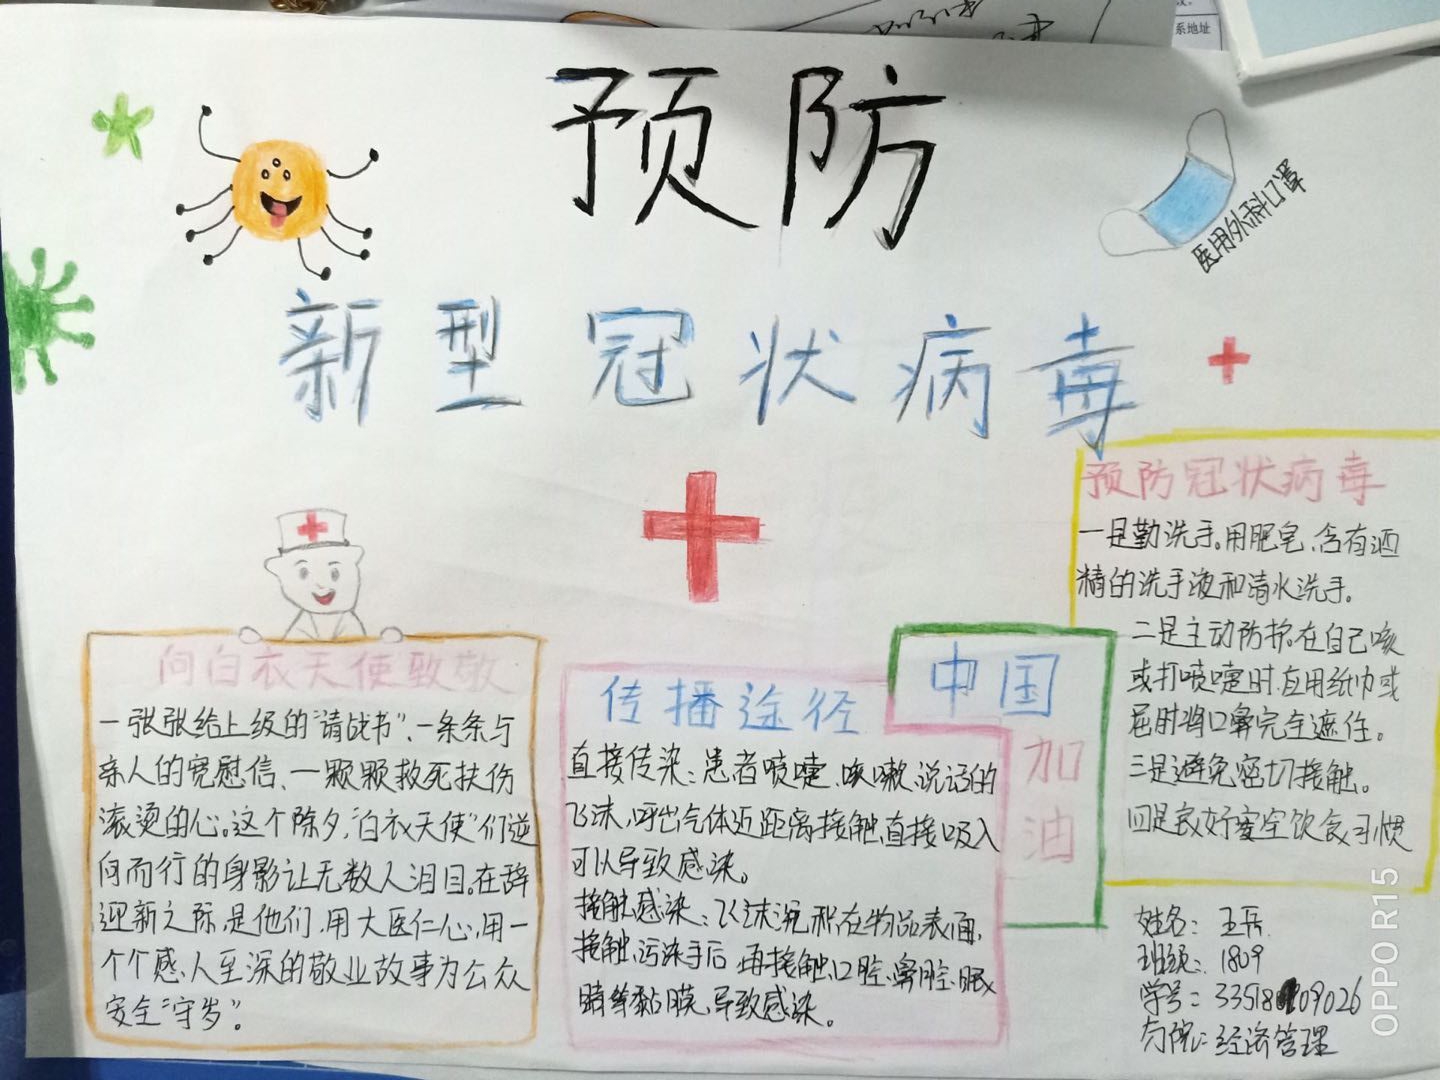 系地址
预防
医用外科口罩
新型冠状病毒
预防冠状病毒
一是勤洗手。用肥皂、含有酒
精的洗手液和清水洗手。
二是主动防护。在自己咳
或打喷嚏时,应用纸巾或
屈肘将口鼻完全遮住。
三是避免密切接触。
四是良好安全饮食习惯
向白衣天使致敬
一张张给上级的“请战书”、一条条与
亲人的宽慰信、一颗颗救死扶伤
滚烫的心。这个除夕,“白衣天使”们逆
向而行的身影让无数人泪目。在辞
迎新之际,是他们,用大医仁心,用一
个个感人至深的敬业故事为公众
安全“守岁”。
传播途径
直接传染:患者喷嚏、咳嗽、说话的
飞沫,呼出气体近距离接触直接吸入
可以导致感染。
接触感染:飞沫沉积在物品表面,
接触污染手后,再接触口腔、鼻腔、眼
睛等黏膜,导致感染。
中国
加油
姓名:王岳
班级:1809
学号:3351809026
学院:经济管理
OPPO R15